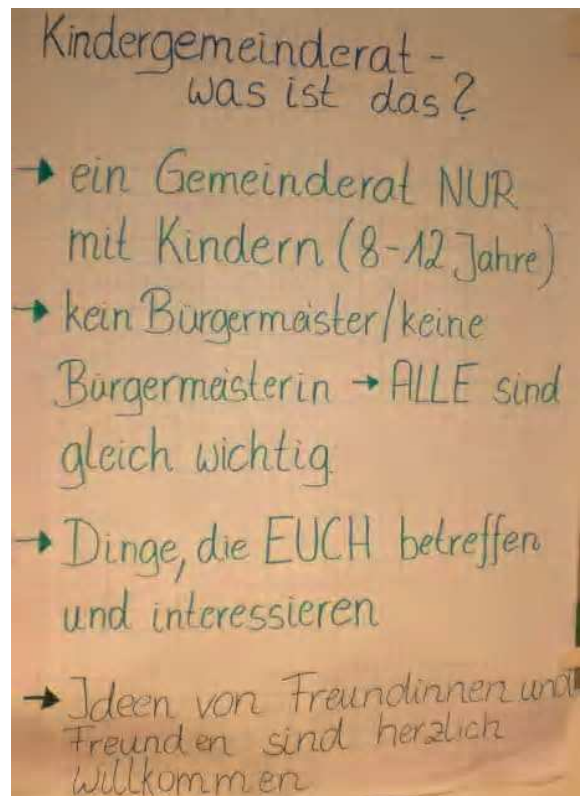 Kindergemeinderat -
was ist das?
→ ein Gemeinderat NUR
mit Kindern (8-12 Jahre)
→ kein Bürgermeister/keine
Bürgermeisterin → ALLE sind
gleich wichtig
→ Dinge, die EUCH betreffen
und interessieren
→ Ideen von Freundinnen und
Freunden sind herzlich
willkommen